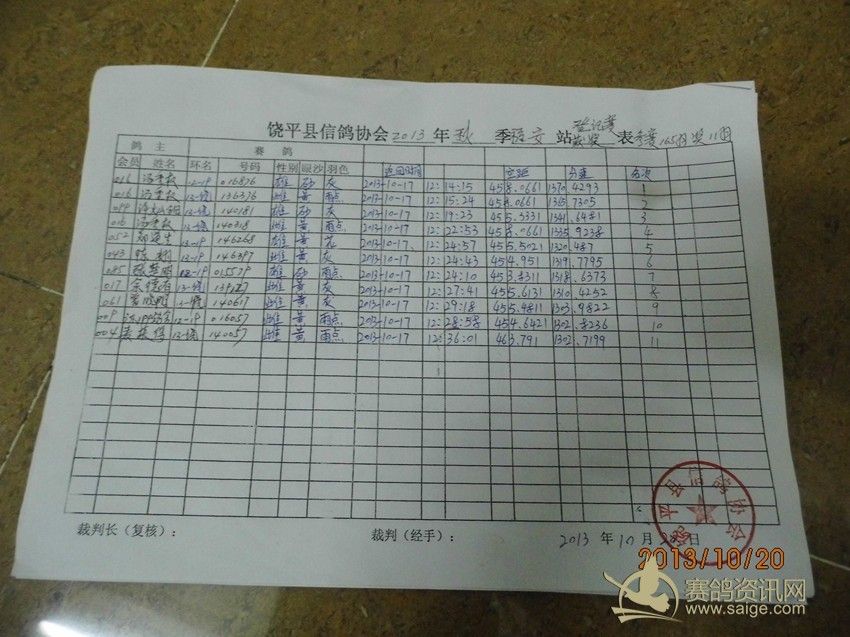 饶平县信鸽协会 2013 年 秋 季 安 站 登记赛 表 参赛165羽奖11羽
鸽 主 赛 鸽
会员 姓名 环名 号码 性别 眼沙 羽色 返回时间 空距 分速 名次
016 12-19 016876 雄 砂 灰 2013-10-17 12:14:15 458.0661 1370.4293 1
016 136376 雄 黄 雨点 2013-10-17 12:15:24 458.0661 1365.7305 2
140181 雌 黄 灰 2013-10-17 12:19:23 455.3331 1341.6481 3
016 140318 雌 黄 雨点 2013-10-17 12:22:53 458.0661 1335.9238 4
052 13-19 146268 雄 黄 灰 2013-10-17 12:24:57 455.5021 1320.487 5
043 12-19 146397 雌 黄 灰 2013-10-17 12:24:43 454.951 1319.7795 6
085 12-19 015579 雄 砂 雨点 2013-10-17 12:24:10 453.8311 1318.6373 7
017 雌 黄 灰 2013-10-17 12:27:41 455.6131 1310.4252 8
061 140617 雌 黄 灰 2013-10-17 12:29:18 455.4811 1303.9822 9
009 12-19 016057 雌 黄 雨点 2013-10-17 12:28:58 454.6421 1302.8236 10
004 140057 雌 黄 雨点 2013-10-17 12:36:01 463.791 1302.7199 11
裁判长（复核）： 裁判（经手）： 2013 年 10 月 日
饶平县信鸽协会
2013/10/20
赛鸽资讯网
www.saige.com